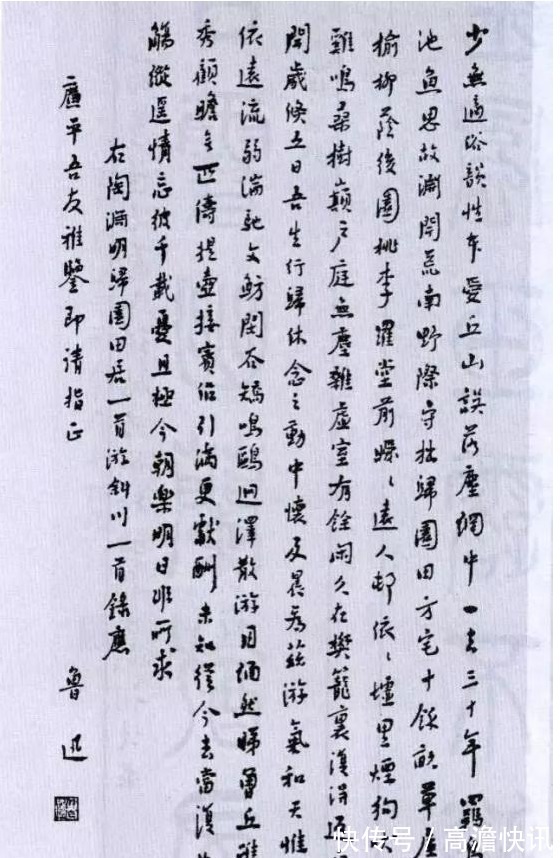 少無適俗韻性本愛丘山誤落塵網中一去三十年羈
池魚思故淵開荒南野際守拙歸園田方宅十餘畝草
榆柳蔭後園桃李羅堂前曖〻遠人邨依〻墟里煙狗
雞鳴桑樹顛戶庭無塵雜虛室有餘閑久在樊籠裏復得返
開歲倏五日吾生行歸休念之動中懷及晨為茲游氣和天惟
依遠流弱湍馳文魴閒谷矯鳴鷗迥澤散游目緬然睇曾丘雖
秀顧瞻無匹儔提壺接賓侶引滿更獻酬未知從今去當復
觴縱遙情忘彼千載憂且極今朝樂明日非所求
右陶淵明歸園田居一首游斜川一首錄應
廣平吾友雅鑒即請指正
魯迅
快传号/高澹快讯